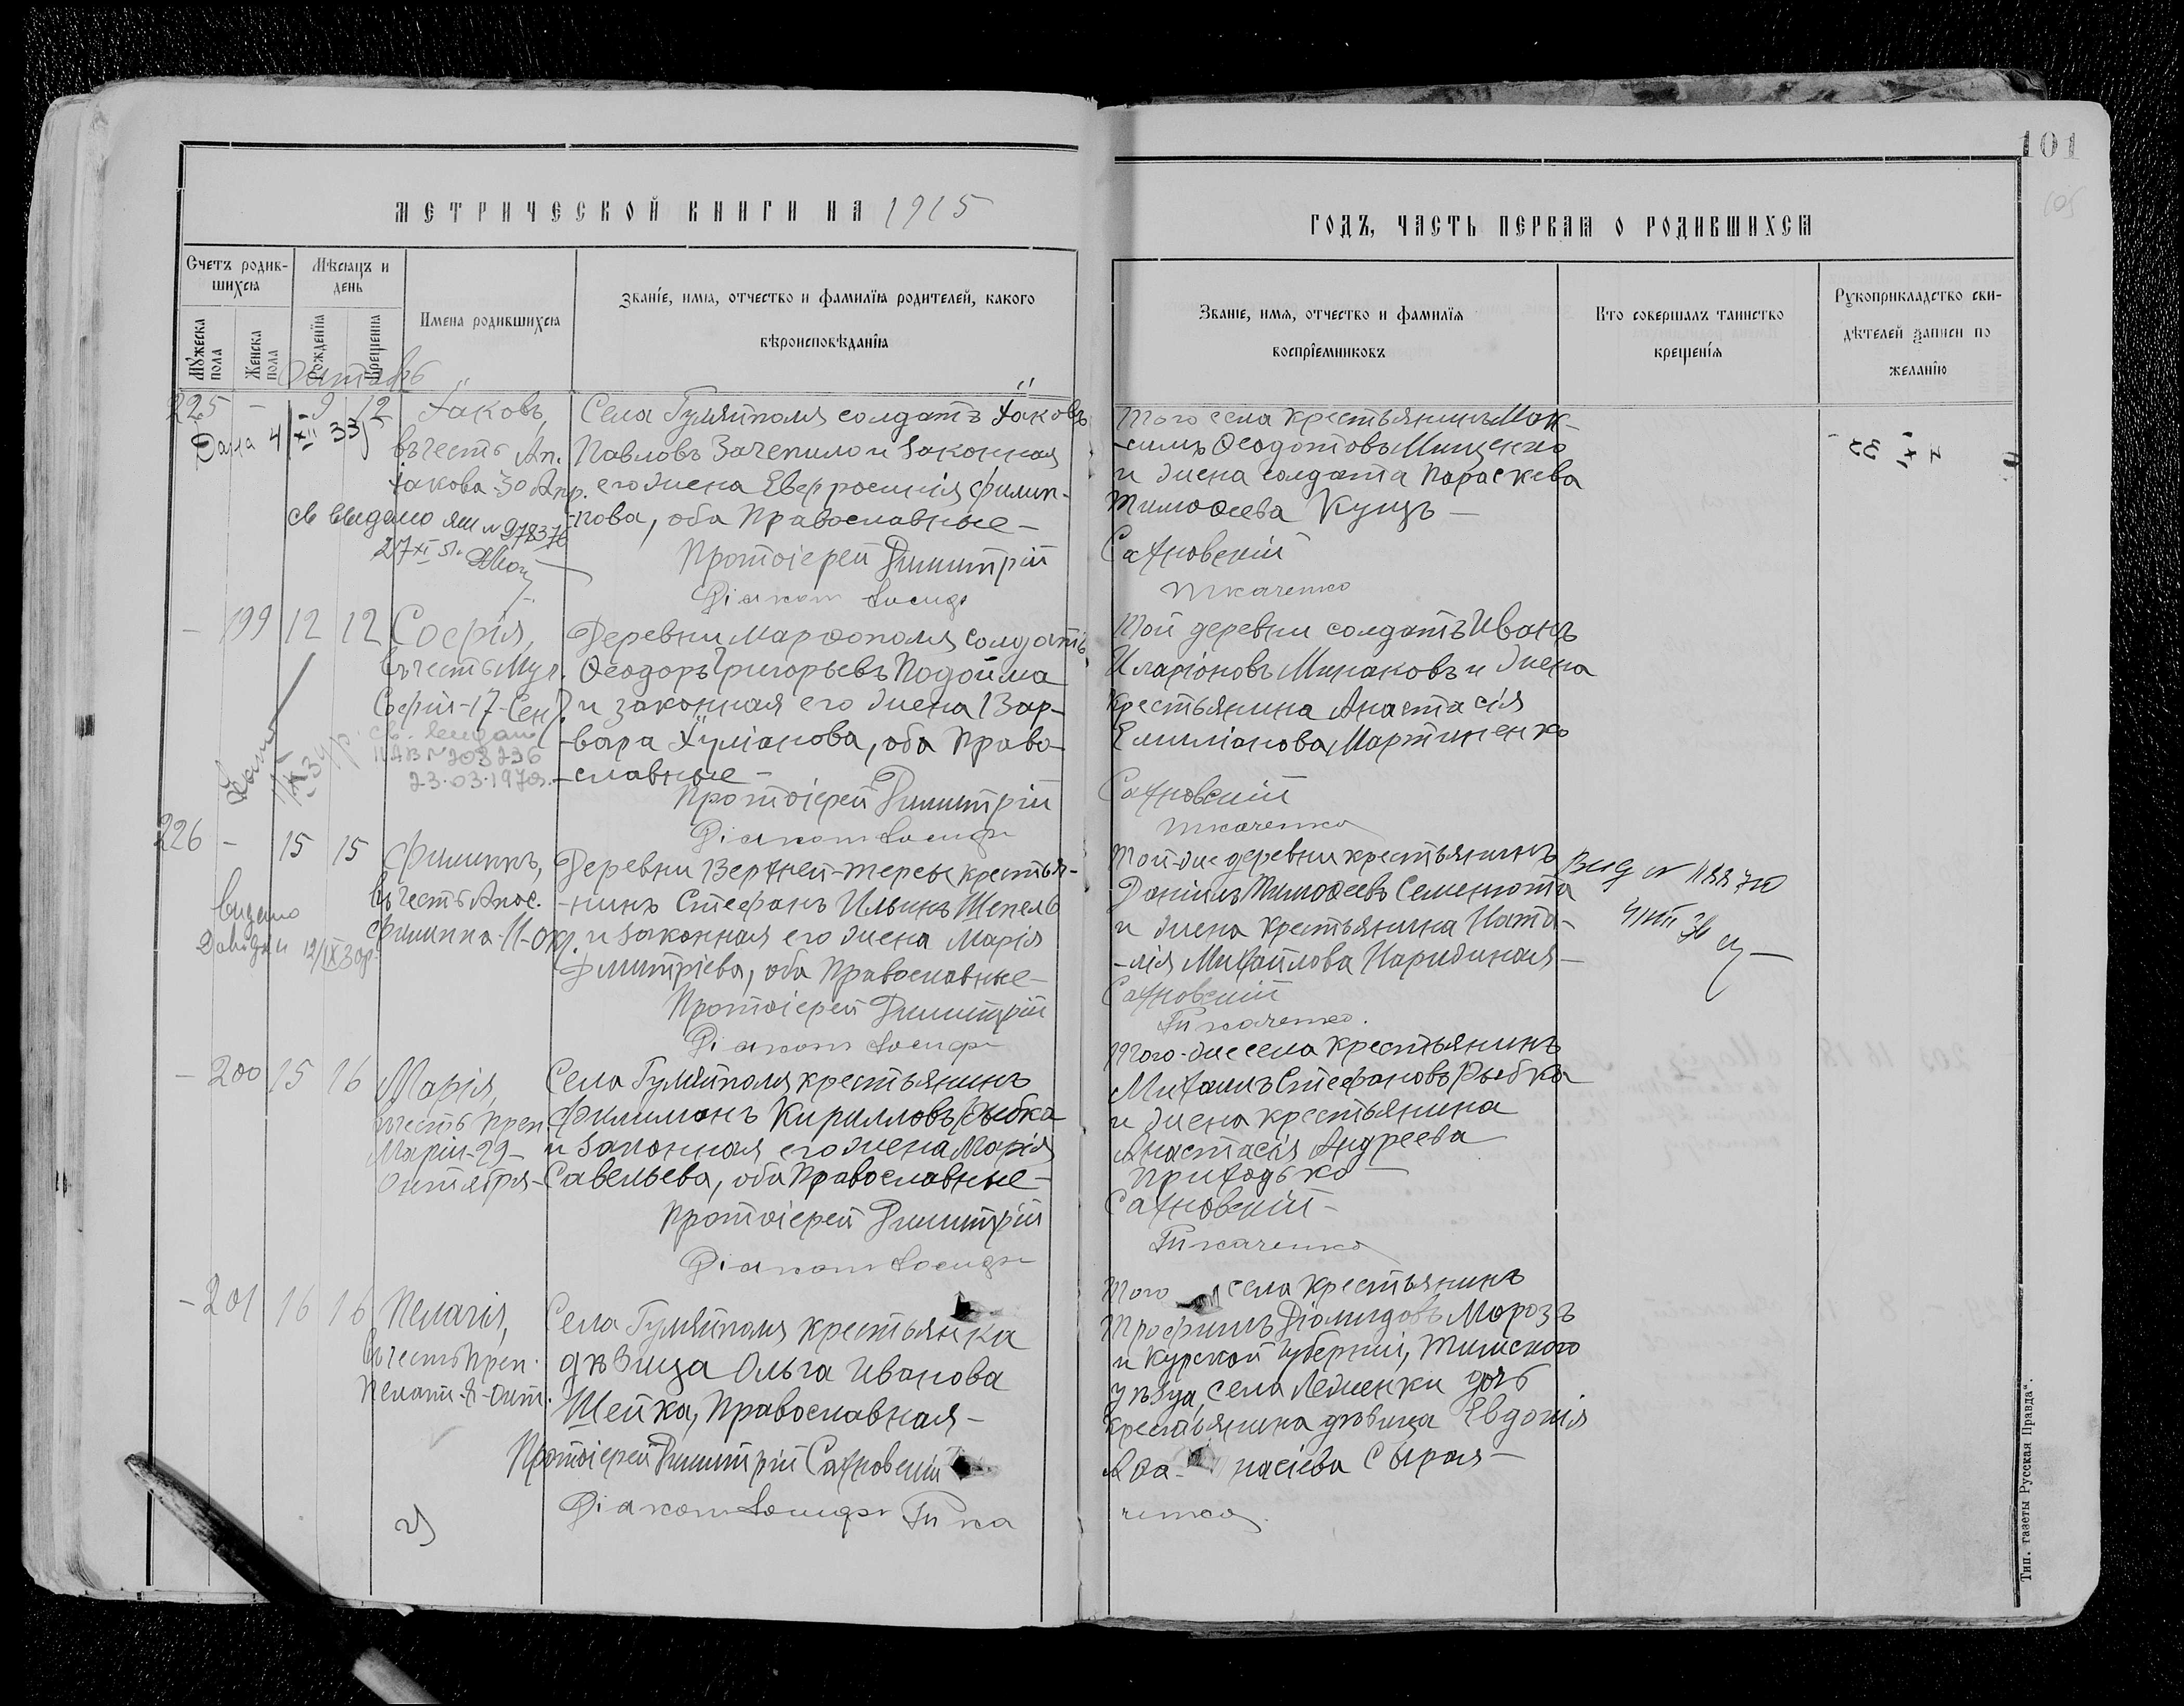 101
МЕТРИЧЕСКОЙ КНИГИ НА 1915
ГОДЪ, ЧАСТЬ ПЕРВАЯ О РОДИВШИХСЯ
Счетъ родив-
шихся
Мѣсяцъ и
день
Мужеска
пола
Женска
пола
Рожденія
Крещенія
Имена родившихся
Званіе, имя, отчество и фамилія родителей, какого
вѣроисповѣданія
Званіе, имя, отчество и фамилія
воспріемниковъ
Кто совершалъ таинство
крещенія
Рукоприкладство сви-
дѣтелей записи по
желанію
Октябрь
225 - 9 12
Іаковъ,
въ честь Ап.
Іакова 30 Апр.
Дана 4/XII 33
св видано ЯШ № 978376
27 XI 51.
Села Гуляйполя солдатъ Іаковъ
Павловъ Зачепило и законная
его жена Евфросинія Филип-
пова, оба Православные -
Протоіерей Димитрій
Діаконъ Іосифъ
Того села крестьянинъ Мак-
-симъ Ѳеодотовъ Мищенко
и жена солдата Параскева
Тимоѳеева Куцъ -
Сахновскій
Ткаченко
- 199 12 12
Софія,
въ честь Муч.
Софіи-17-Сен.
св. выдано
№ 203236
23.03.1970.
Деревни Марѳополя солдатъ
Ѳеодоръ Григорьевъ Подойма
и законная его жена Вар-
-вара Іуліанова, оба Право-
-славные -
Протоіерей Димитрій
Діаконъ Іосифъ
Той деревни солдатъ Иванъ
Иларіоновъ Минаковъ и жена
крестьянина Анастасія
Емиліанова Мартиненко
Сахновскій
Ткаченко
226 - 15 15
Филиппъ,
въ честь Апос.
Филиппа-11-Окт.
видано
12/IX 30р.
Деревни Верхней-Терсы крестья-
-нинъ Стефанъ Ильинъ Шепель
и законная его жена Марія
Димитріева, оба Православные -
Протоіерей Димитрій
Діаконъ Іосифъ
Той-же деревни крестьянинъ
Даніилъ Тимоѳеевъ Семенюта
и жена крестьянина Ната-
-лія Михайлова Нарижная -
Сахновскій
Ткаченко.
- 200 15 16
Марія,
въ честь Преп.
Маріи-29-
Октября-
Села Гуляйполя крестьянинъ
Филимонъ Кирилловъ Рыбка
и законная его жена Марія
Савельева, оба Православные -
Протоіерей Димитрій
Діаконъ Іосифъ
Того-же села крестьянинъ
Михаилъ Стефановъ Рыбка
и жена крестьянина
Анастасія Андреева
Приходько -
Сахновскій -
Ткаченко
- 201 16 16
Пелагія,
въ честь Преп.
Пелагіи-8-Окт.
Села Гуляйполя крестьянка
дѣвица Ольга Иванова
Шейка, Православная -
Протоіерей Димитрій Сахновскій
Діаконъ Іосифъ Тка
Того села крестьянинъ
Трофимъ Діомидовъ Морозъ
и Курской губерніи, Тимскаго
уѣзда, села Леженки дочь
крестьянина дѣвица Евдокія
Аѳа- насіева Сырая -
ченко.
Тип. газеты „Русская Правда“.